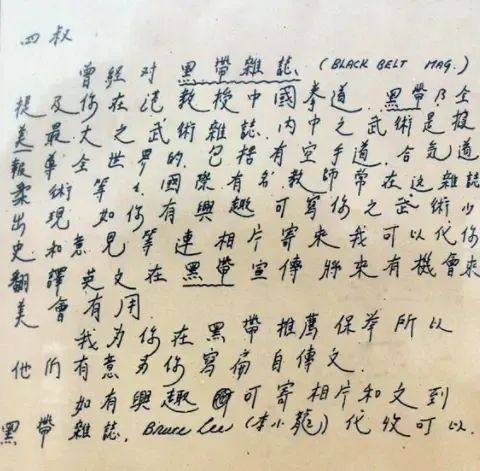 四叔
曾経对黑带雜誌. (BLACK BELT MAG.)
提及你在港教授中國拳道. 黑带乃全
美最大之武術雜誌. 內中之武術是
報導全世界的. 包括有空手道. 合気道
柔術等. 國際有名教師常在这雜誌
出現. 如你有興趣可寫你之武術小
史和意見等連相片寄來我可以代你
翻譯英文在黑帶宣傳將來有機會來
美會有用.
我为你在黑帶推薦保举所以
他们有意为你寫扁自傳文.
如有興趣可寄相片和文到
黑帶雜誌. Bruce Lee (李小龍) 代收可以.